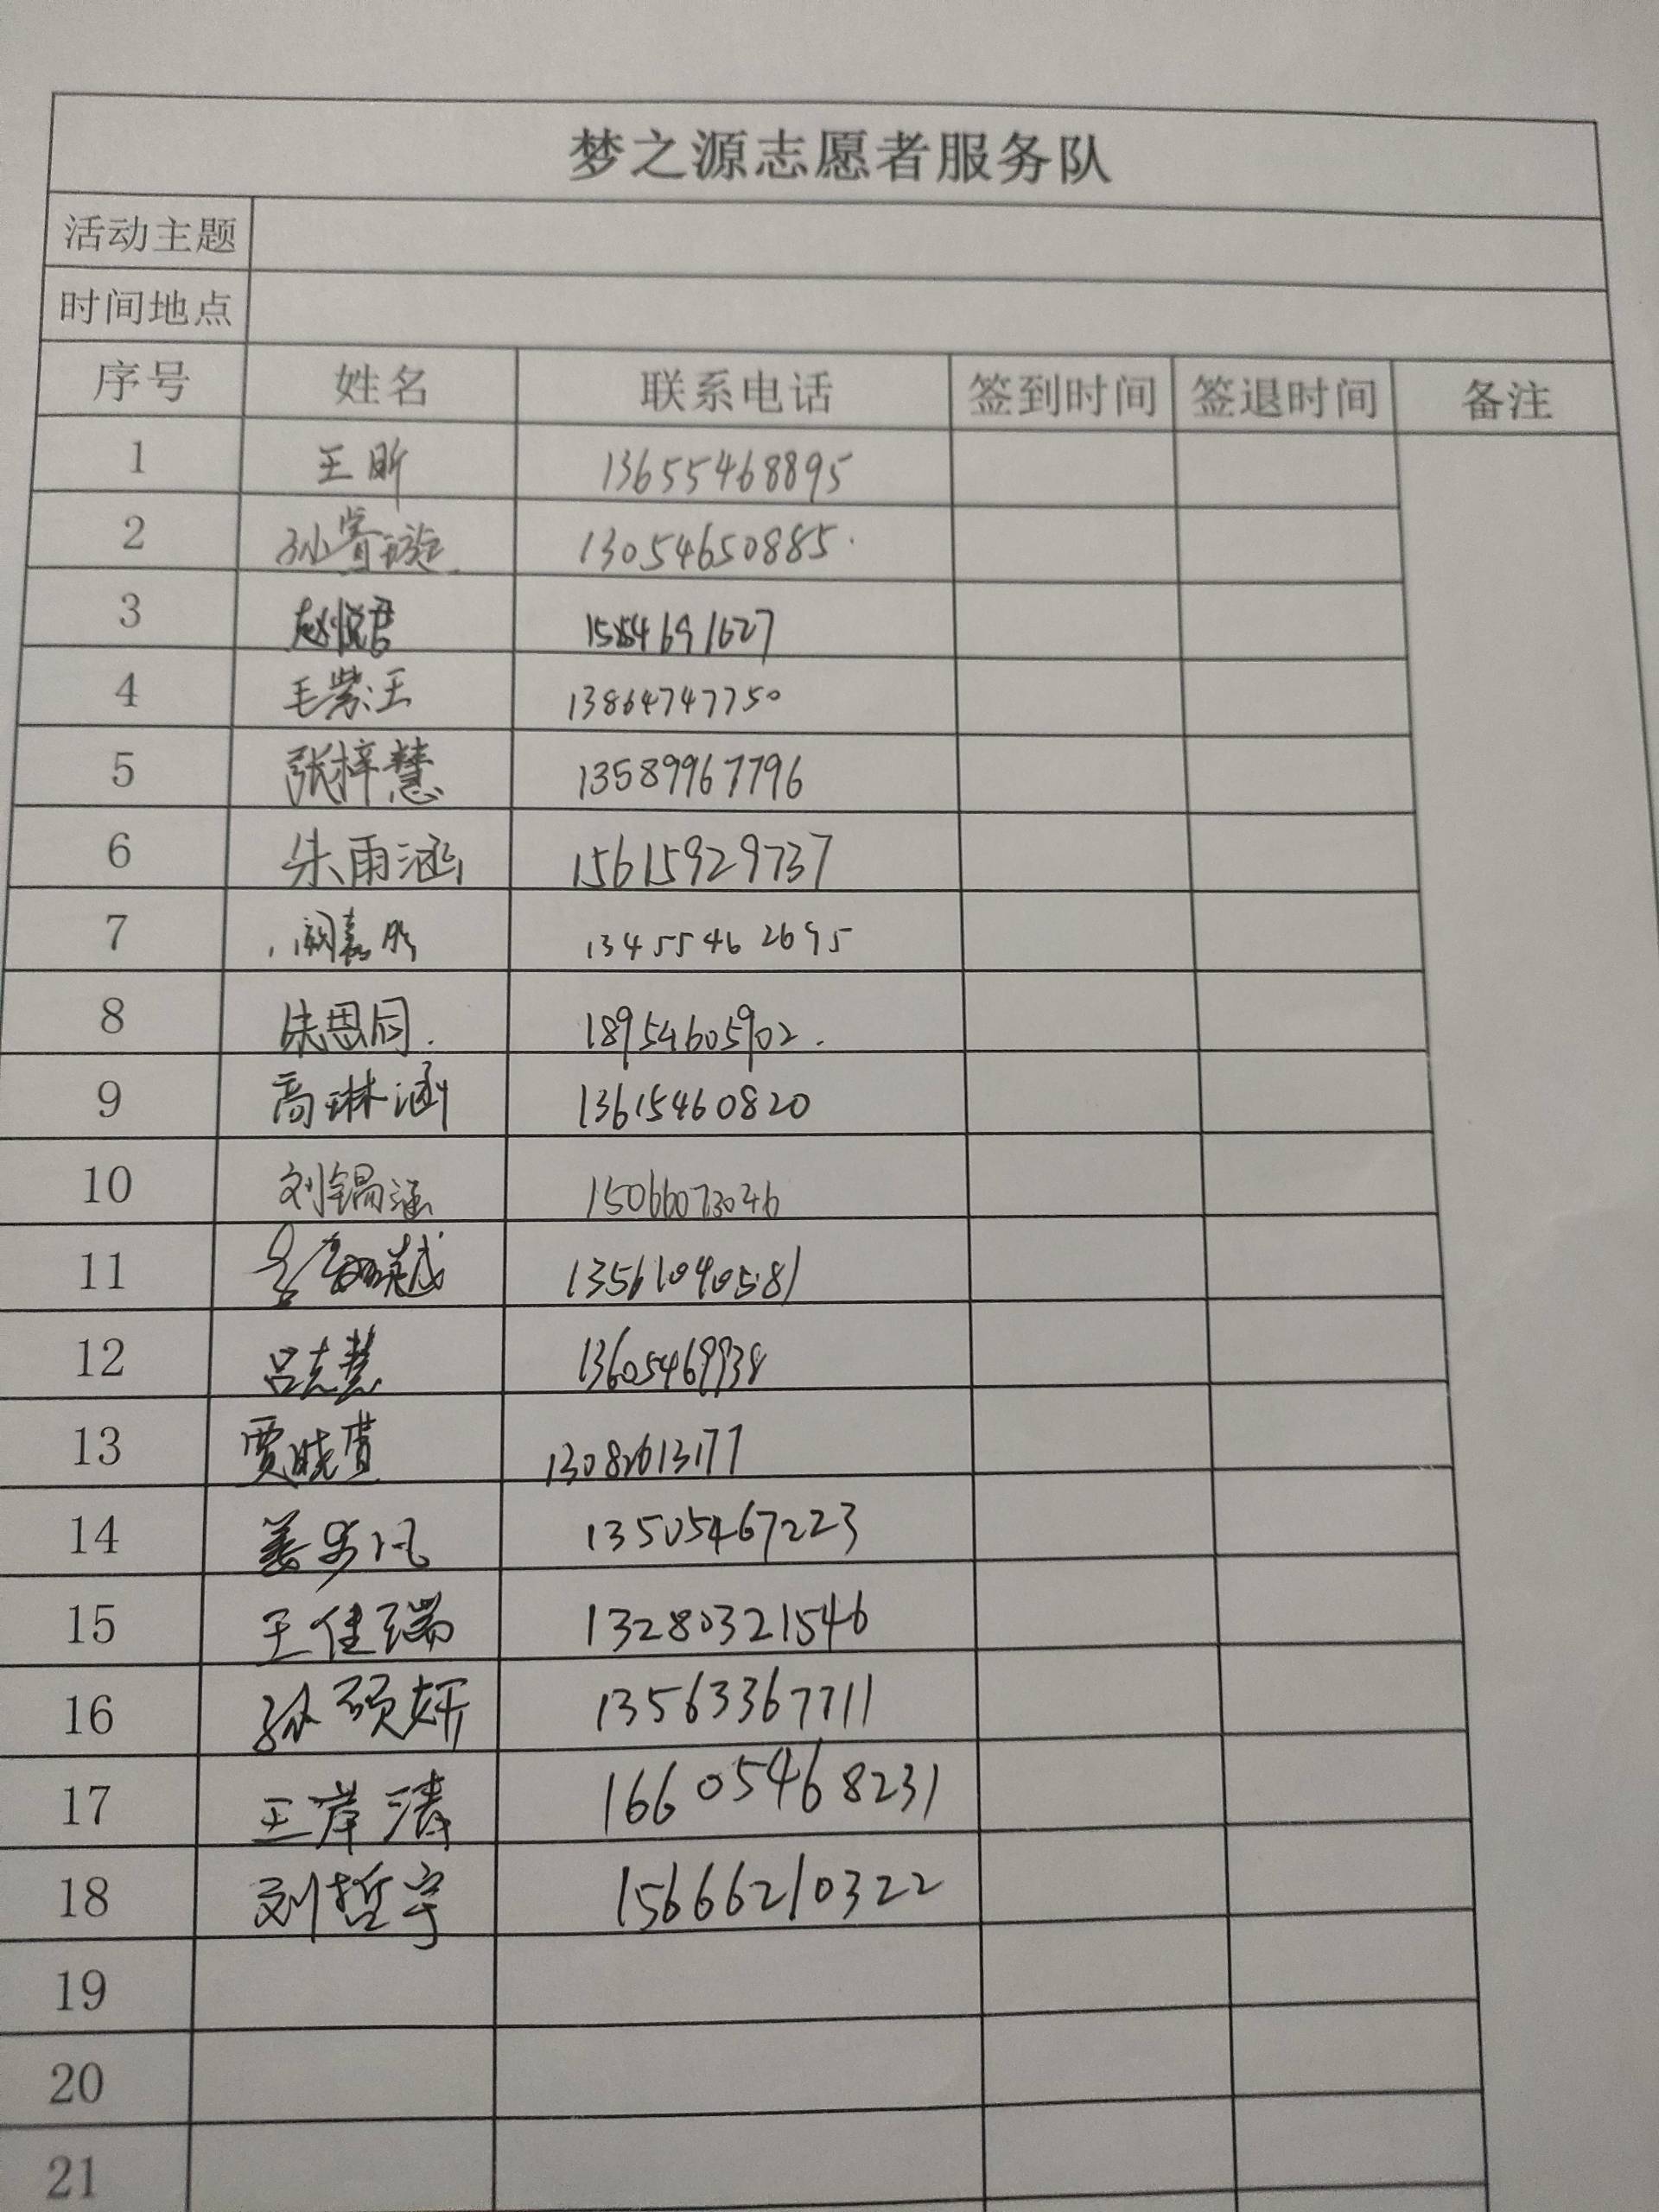 梦之源志愿者服务队
活动主题
时间地点
序号 姓名 联系电话 签到时间 签退时间 备注
1 王昕 13655468895
2 13054650885
3 赵悦君
4 毛紫汪 13864747750
5 张梓慧 13589967796
6 朱雨涵 15615929737
7 13455462695
8 朱思同 18954605902
9 高琳涵 13615460820
10 刘锡涵 15066073046
11 13561040581
12 吕志慧 13605469938
13 贾晓萱
14 姜乐凡 13505467223
15 王佳瑞 13280321546
16 孙硕妍 13563367711
17 王岸清 16605468231
18 刘哲宇 15666210322
19
20
21